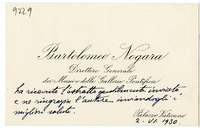 9229
Bartolomeo Nogara
Direttore Generale
dei Musei e delle Gallerie Pontificie
Ha ricevuto l'estratto gentilmente inviato
e ne ringrazia l'autore inviandogli i
migliori saluti.
Palazzo Vaticano
2. VI. 1930.